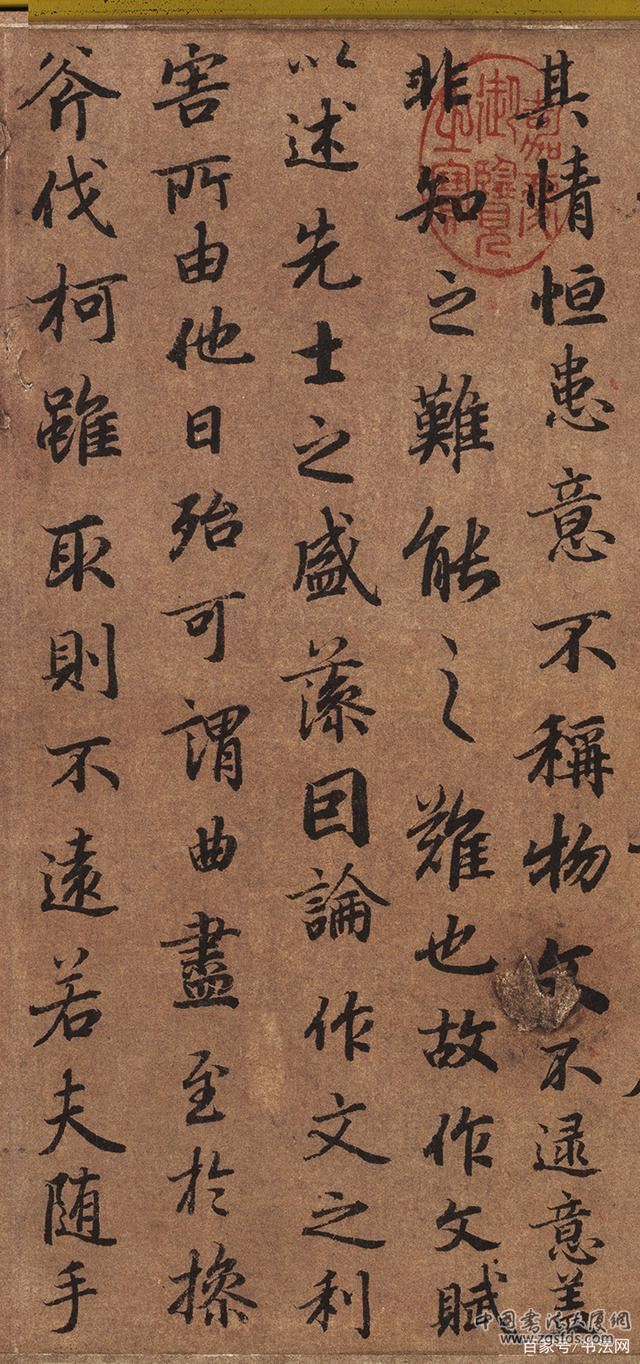 其情恒患意不稱物文不逮意盖
非知之難能之難也故作文賦
以述先士之盛藻因論作文之利
害所由他日殆可謂曲盡至於操
斧伐柯雖取則不遠若夫随手
嘉慶御覽之寶
www.zgsfds.com
百家号/书法网